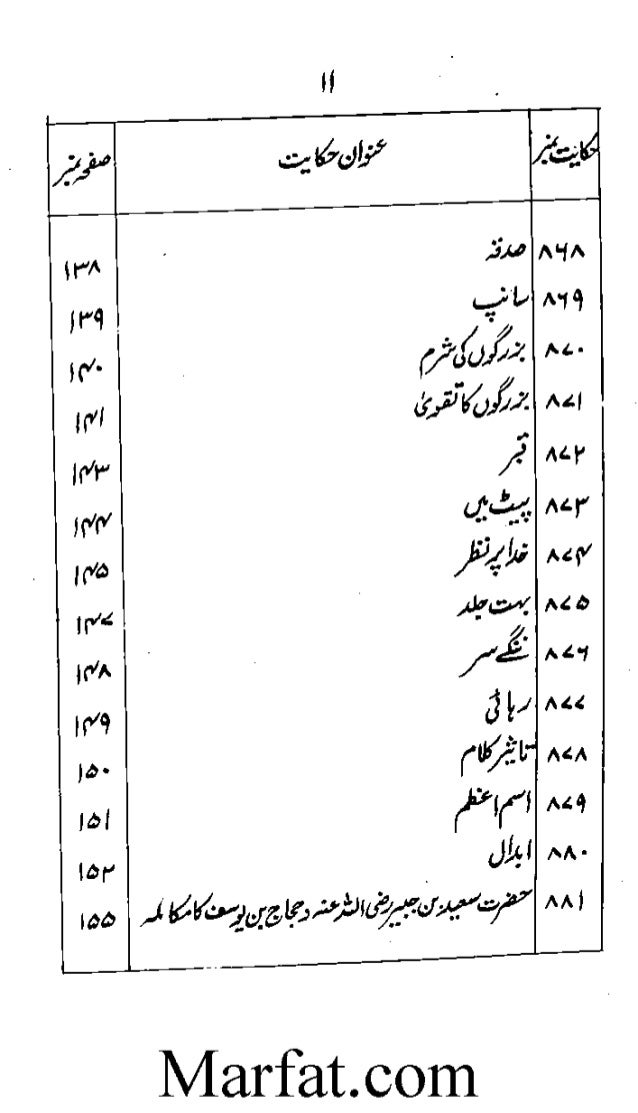 ۱۱
حکایت نمبر عنوان حکایت صفحہ نمبر
۸۶۸ صدقہ ۱۳۸
۸۶۹ سانپ ۱۳۹
۸۷۰ بزرگوں کی شرم ۱۴۰
۸۷۱ بزرگوں کا تقویٰ ۱۴۱
۸۷۲ قبر ۱۴۳
۸۷۳ پیٹ میں ۱۴۴
۸۷۴ خدا پر نظر ۱۴۵
۸۷۵ بہت جلد ۱۴۷
۸۷۶ ننگے سر ۱۴۸
۸۷۷ رہائی ۱۴۹
۸۷۸ تاثیر کلام ۱۵۰
۸۷۹ اسم اعظم ۱۵۱
۸۸۰ ابدال ۱۵۲
۸۸۱ حضرت سعید بن جبیر رضی اللہ عنہ و حجاج بن یوسف کا مکالمہ ۱۵۵
Marfat.com